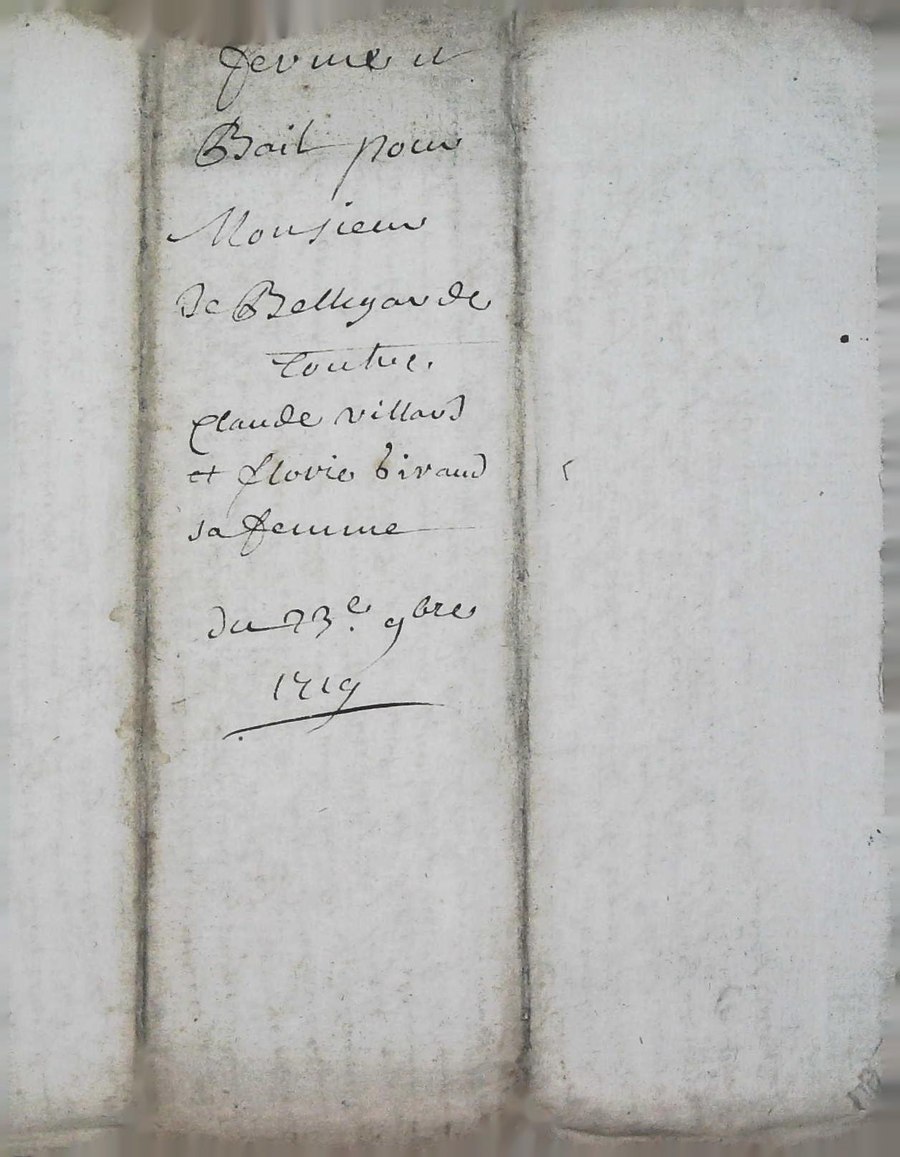 ferme et
Bail pour
Monsieur
de Bellegarde
Contre.
Claude villard
et florie Giraud
sa femme
du 23e. 9bre
1719